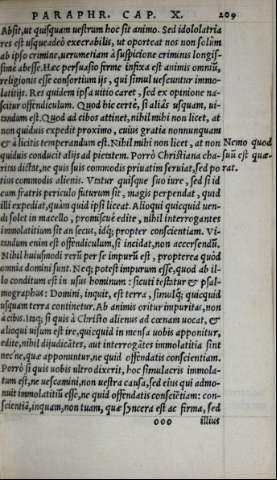 PARAPHR. CAP. X. 209
Absit, ut quisquam uestrum hoc sit animo. Sed idololatria
res est usqueadeò execrabilis, ut oporteat nos non solùm
ab ipso crimine, uerumetiam à suspicione criminis longis-
simè abesse. Hæc persuasio ferme infixa est animis omniũ,
religionis esse consortium ijs, qui simul uescuntur immo-
latitijs. Res quidem ipsa uitio caret, sed ex opinione na-
scitur offendiculum. Quod bic certè, si aliás usquam, ui-
tandum est. Quod ad cibos attinet, nihil mihi non licet, at
non quiduis expedit proximo, cuius gratia nonnunquam
& à licitis temperandum est. Nihil mihi non licet, at non
quiduis conducit alijs ad pietatem. Porrò Christiana cha-
ritas dictat, ne quis suis commodis priuatim seruiat, sed po
tius commodis alienis. Vtatur quisque suo iure, sed si id
cum fratris periculo futurum sit, magis perpendat, quid
illi expediat, quàm quid ipsi liceat. Alioqui quicquid uen-
di solet in macello, promiscuè edite, nihil interrogantes
immolatitium sit an secus, idq; propter conscientiam. Vi-
tandum enim est offendiculum, si incidat, non accersendũ.
Nihil huiusmodi rerũ per se impurũ est, propterea quòd
omnia domini sunt. Neq; potest impurum esse, quod ab il-
lo conditum est in usus hominum: sicuti testatur & psal-
mographos: Domini, inquit, est terra, simulq; quicquid
usquam terra continetur. Ab animis oritur impuritas, non
à cibis. Itaq; si quis à Christo alienus ad cœnam uocat, &
alioqui uisum est ire, quicquid in mensa uobis apponitur,
edite, nihil dijudicãtes, aut interrogãtes immolatitia sint
nec ne, quæ apponuntur, ne quid offendatis conscientiam.
Porrò si quis uobis ultro dixerit, hoc simulacris immola-
tum est, ne uescamini, non uestra causa, sed eius qui admo-
nuit immolatitiũ esse, ne quid offendatis consciẽtiam: con-
scientiã, inquam, non tuam, quæ syncera est ac firma, sed
Nemo quod
suũ est quæ-
rat.
ooo illius